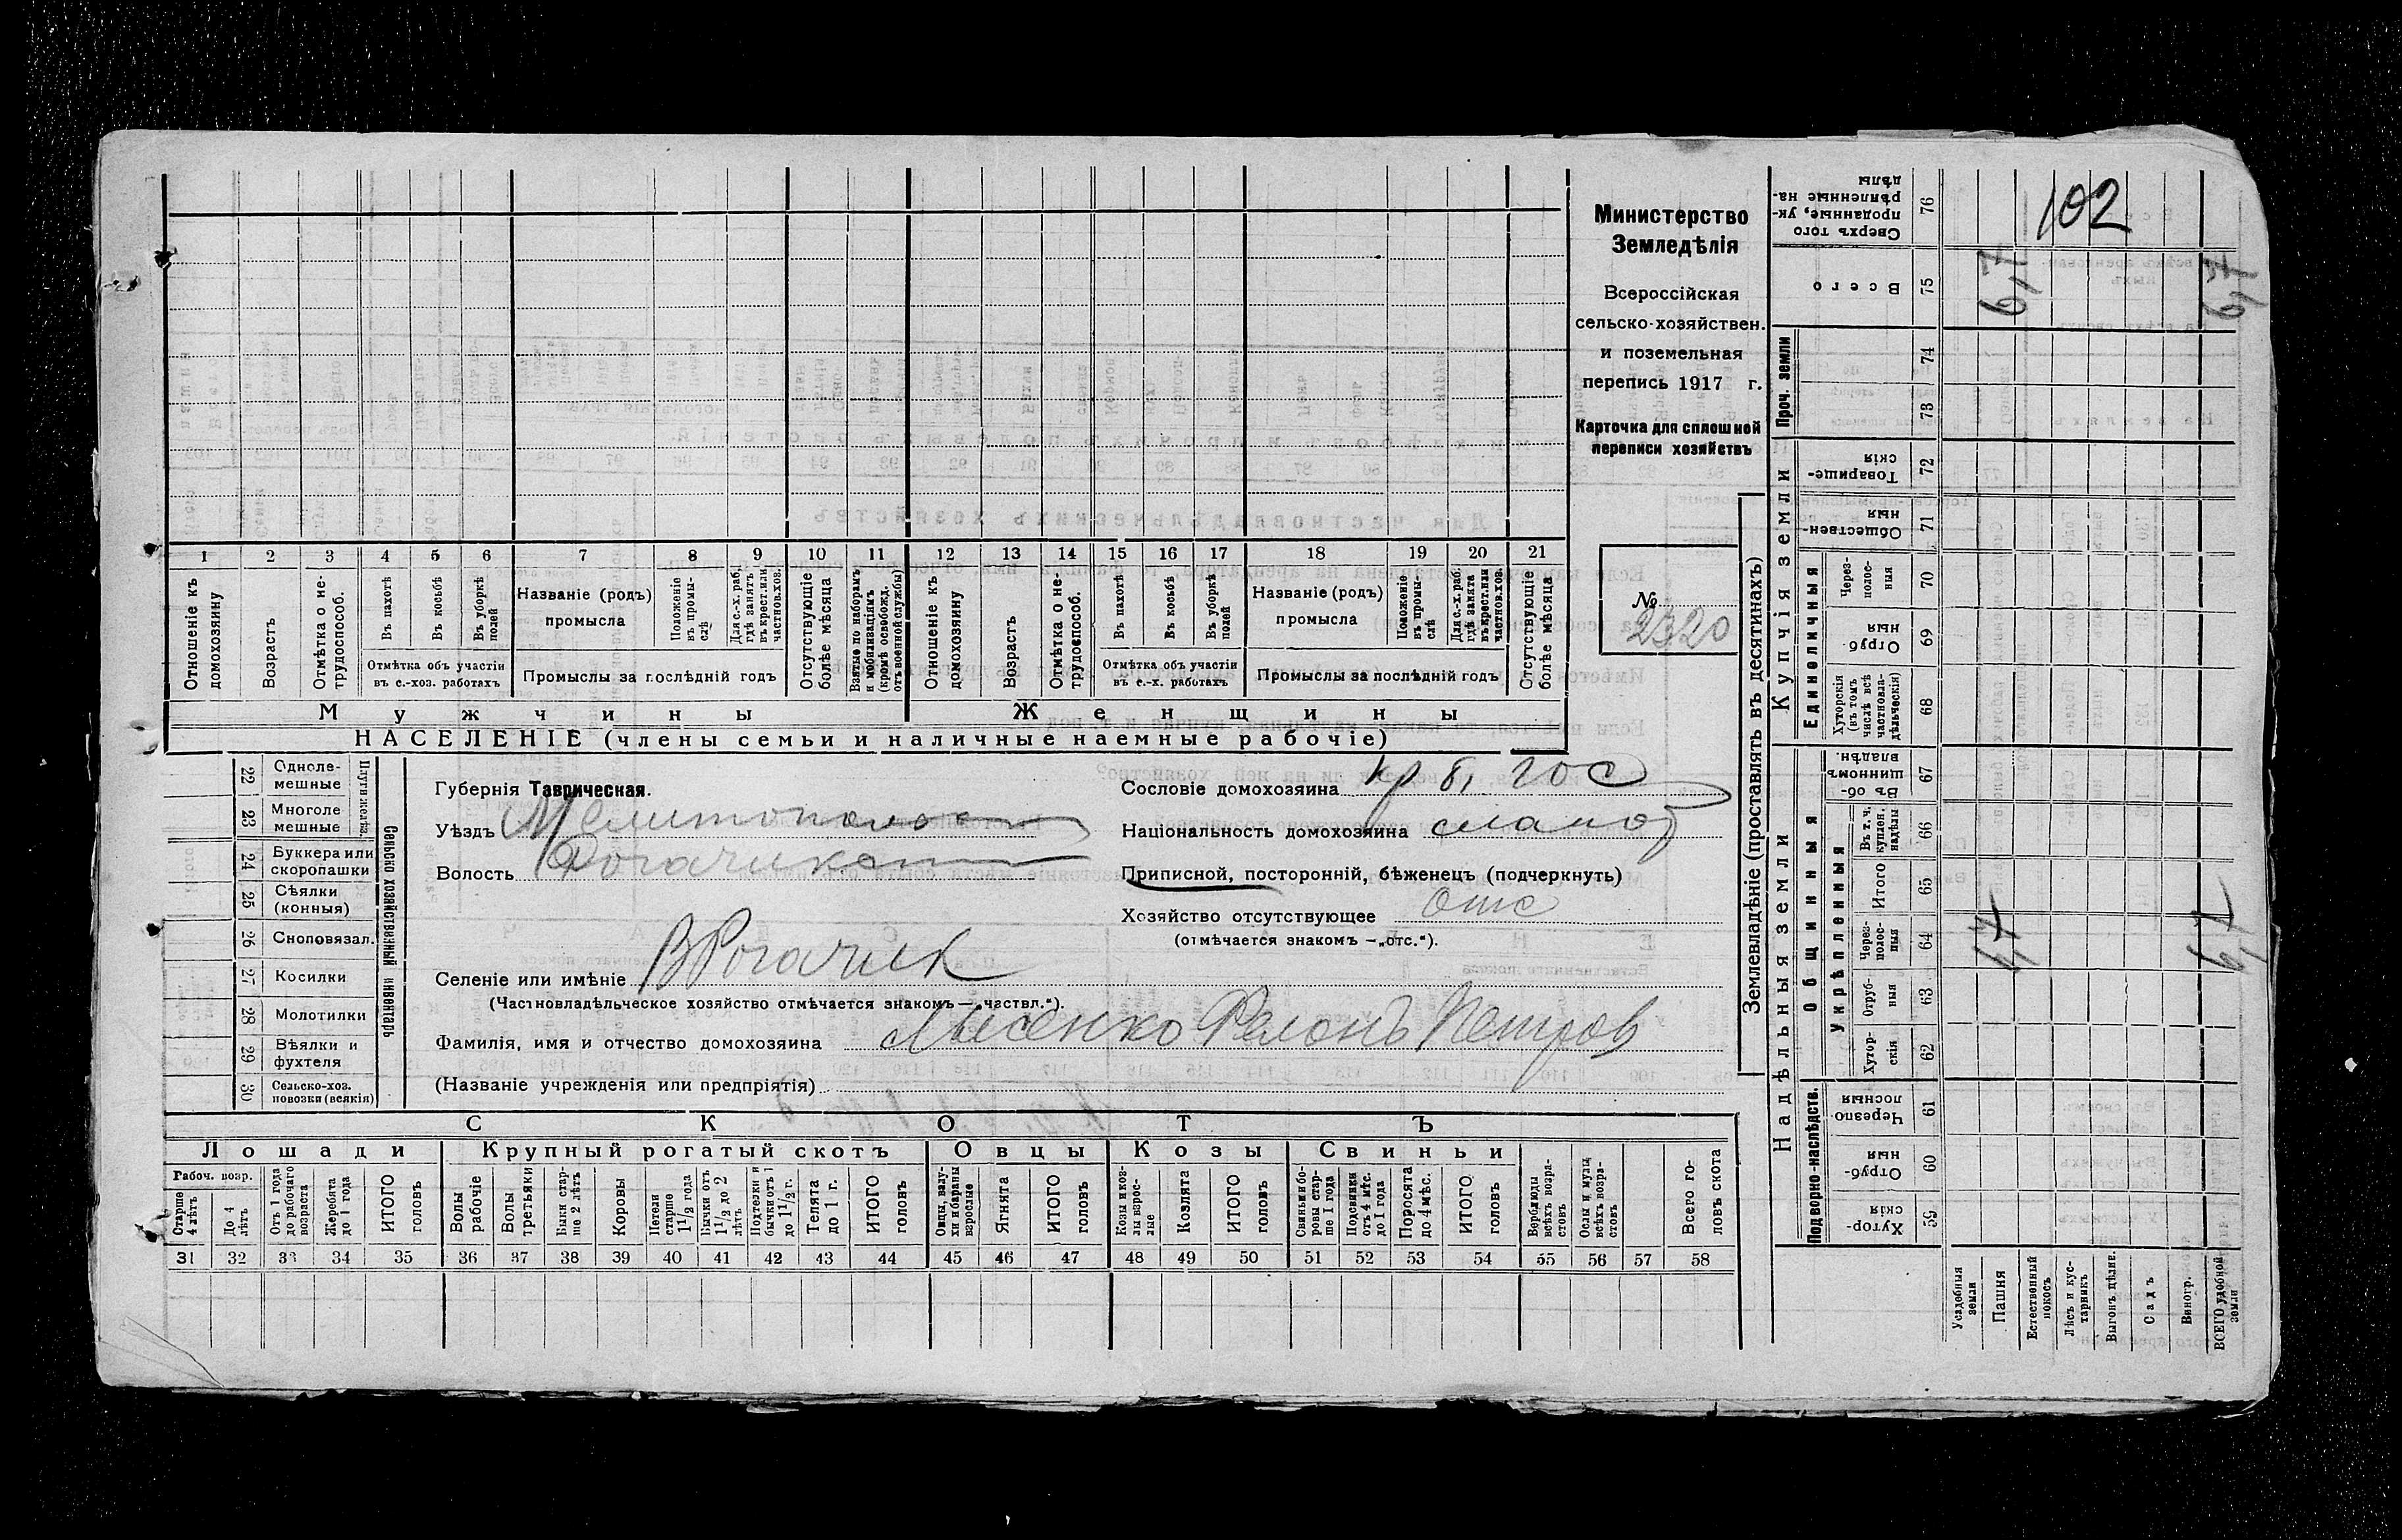 1 2 3 4 5 6 7 8 9 10 11 12 13 14 15 16 17 18 19 20 21
Отношеніе къ домохозяину
Возрастъ
Отмѣтка о не-трудоспособ.
Въ пахотѣ
Въ косьбѣ
Въ уборкѣ полей
Отмѣтка объ участіи въ с.-хоз. работахъ
Названіе (родъ) промысла
Положеніе въ промы-слѣ
Для с.-х. раб. гдѣ занятъ въ крест. или частнов. хоз.
Промыслы за послѣдній годъ
Отсутствующіе болѣе мѣсяца
Взятые по наборамъ и мобилизаціямъ (кромѣ освобожд. отъ военной службы)
Отношеніе къ домохозяину
Возрастъ
Отмѣтка о не-трудоспособ.
Въ пахотѣ
Въ косьбѣ
Въ уборкѣ полей
Отмѣтка объ участіи въ с.-х. работахъ
Названіе (родъ) промысла
Положеніе въ промы-слѣ
Для с.-х. раб. гдѣ занята въ крест. или частнов. хоз.
Промыслы за послѣдній годъ
Отсутствующіе болѣе мѣсяца
Мужчины
Женщины
НАСЕЛЕНІЕ (члены семьи и наличные наемные рабочіе)
Министерство
Земледѣлія
Всероссійская
сельско-хозяйствен.
и поземельная
перепись 1917 г.
Карточка для сплошной
переписи хозяйствъ
№
2320
22 Одноле-мешные
23 Многоле мешные
Плуги желѣз.
24 Буккера или скоропашки
25 Сѣялки (конныя)
26 Сноповязал.
27 Косилки
28 Молотилки
29 Вѣялки и фухтеля
30 Сельско-хоз. повозки (всякія)
Сельско хозяйственный инвентарь
Губернія Таврическая.
Уѣздъ Мелитопольск
Волость Рогачикск
Селеніе или имѣніе В Рогачик
(Частновладѣльческое хозяйство отмѣчается знакомъ — „частвл.“).
Фамилія, имя и отчество домохозяина Лысенко Филонъ Петров
(Названіе учрежденія или предпріятія)
Сословіе домохозяина кр б, гос
Національность домохозяина
Приписной, посторонній, бѣженецъ (подчеркнуть)
Хозяйство отсутствующее Отс
(отмѣчается знакомъ — „отс.“).
СКОТЪ
Лошади Крупный рогатый скотъ Овцы Козы Свиньи
Рабоч. возр.
Старше 4 лѣтъ
До 4 лѣтъ
Отъ 1 года до рабочаго возраста
Жеребята до 1 года
ИТОГО головъ
Волы рабочіе
Волы третьяки
Быки стар-ше 2 лѣтъ
Коровы
Нетели старше 1 1/2 года
Бычки отъ 1 1/2 до 2 лѣтъ
Подтелки и бычки отъ 1 до 1 1/2 г.
Телята до 1 г.
ИТОГО головъ
Овцы, валу-хи и бараны взрослые
Ягнята
ИТОГО головъ
Козы и коз-лы взрос-лые
Козлята
ИТОГО головъ
Свиньи и бо-ровы стар-ше 1 года
Подсвинки отъ 4 мѣс. до 1 года
Поросята до 4 мѣс.
ИТОГО головъ
Верблюды всѣхъ возра-стовъ
Ослы и мулы всѣхъ возра-стовъ
Всего го-ловъ скота
31 32 33 34 35 36 37 38 39 40 41 42 43 44 45 46 47 48 49 50 51 52 53 54 55 56 57 58
Землевладѣніе (проставлять въ десятинахъ)
Надѣльныя земли
Купчія земли
Проч. земли
Подворно-наслѣдств.
Общинныя
Укрѣпленныя
Единоличныя
Сверхъ того проданные, ук-рѣпленные на-дѣлы 76
102
Всего 75
6,7
67
74
73
Товарище-скія 72
Обществен-ныя 71
Через-полос-ныя 70
Отруб-ныя 69
Хуторскія (въ томъ числѣ всѣ частновла-дѣльческія) 68
Въ об-щинномъ владѣн. 67
Въ т. ч. куплен. надѣлы 66
Итого 65
Через-полос-ныя 64
67
Отруб-ныя 63
Хутор-скія 62
Черезпо-лосныя 61
Отруб-ныя 60
Хутор-скія 59
Усадебныя земли
Пашня
Естественный покосъ
Лѣсъ и кус-тарникъ
Выгонъ цѣлин.
Садъ
Виногр.
ВСЕГО удобной земли